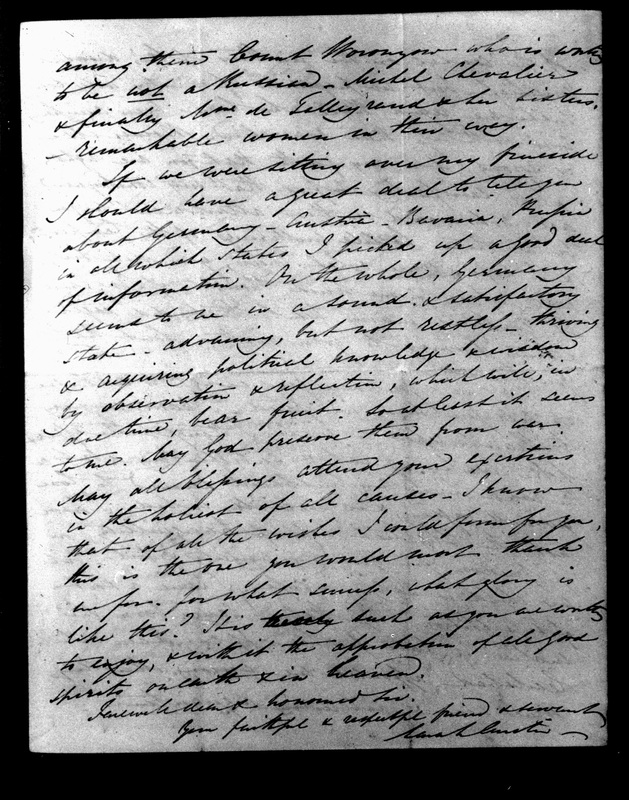 among them Count Woronzow who is worthy
to be not a Russian - Michel Chevalier
& finally Mme de Talleyrand & her sisters,
- remarkable women in their way.
If we were sitting over my fireside
I should have a great deal to tell you
about Germany - Austria - Bavaria, Prussia
in all which states I picked up a good deal
of information. On the whole, Germany
seems to me in a sound & satisfactory
state - advancing, but not restless - thriving
& acquiring political knowledge & wisdom
by observation & reflection, which will, in
due time, bear fruit. So at least it seems
to me. May God preserve them from war.
May all blessings attend your exertions
in the holiest of all causes - I know
that of all the wishes I could form for you,
this is the one you would most thank
me for. For what success, what glory is
like this? It is such as you are worthy
to enjoy, & with it the approbation of all good
spirits on earth & in heaven.
Farewell dear & honoured Sir.
Your faithful & respectful friend & servant
Sarah Austin -